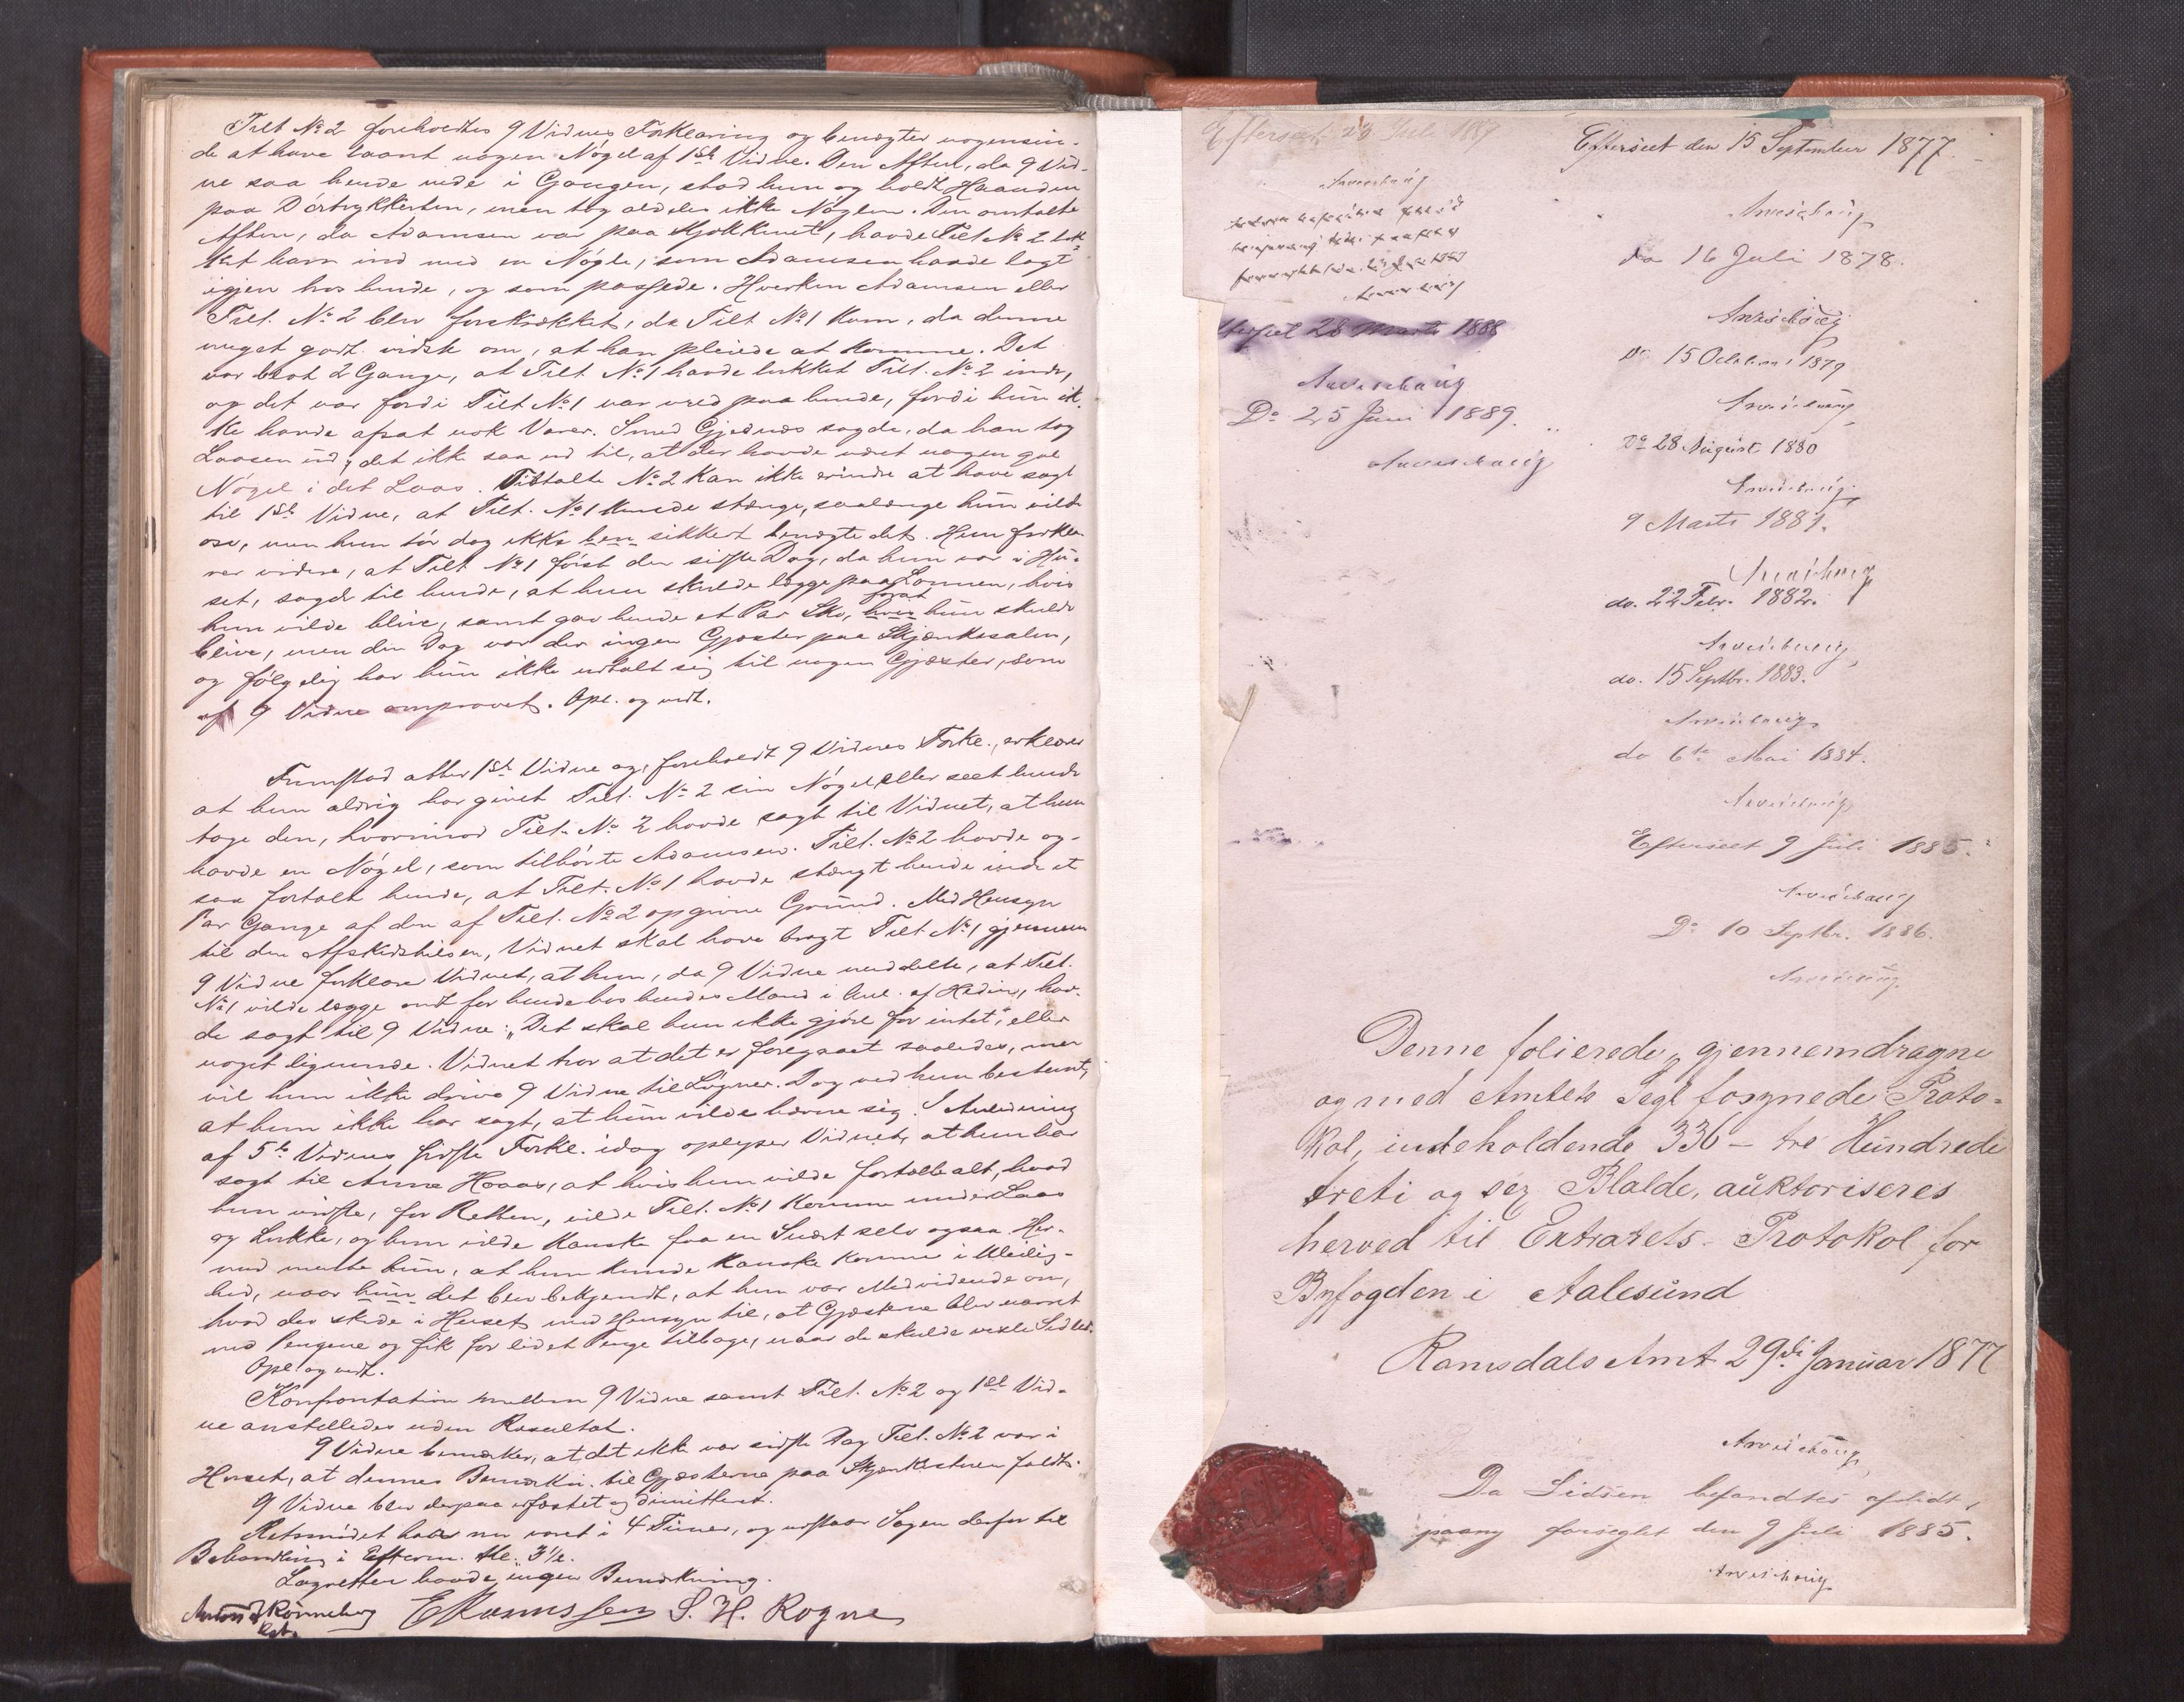 Tilt No 2 foreholdtes 9 Vidnes Forklaring og benægter nogensin-
de at have laant nogen Nøgel af 1ste Vidne. Den Aften, da 9 Vid-
ne saa hende nede i Gangen, stod hun og holdt Haanden
paa Dørtrykkerten, men tog aldeles ikke Nøglen. Den omtalte
Aften, da Adamsen var paa Kjøkkenet, havde Tilt No 2 luk-
ket ham ind med en Nøgle, som Adamsen havde lagt
igjen hos hende, og som passede. Hverken Adamsen eller
Tilt. No 2 blev forskrækket, da Tilt No 1 kom, da denne
meget godt vidste om, at han pleiede at komme. Det
var blot 2 Gange, at Tilt No 1 havde lukket Tilt. No 2 inde,
og det var fordi Tilt No 1 var vred paa hende, fordi hun ik-
ke havde afsat nok Varer. Smed Gjednæs sagde, da han tog
Laasen ud, det ikke saa ud til, at der havde været nogen gal
Nøgel i det Laas. Tiltalte No 2 kan ikke erindre at have sagt
til 1ste Vidne, at Tilt. No 1 kunde stænge, saalænge hun vilde
osv, men hun tør dog ikke ben sikkert benægte det. Hun forkla-
rer videre, at Tilt No 1 først den sidste Dag, da hun var i Hu-
set, sagde til hende, at hun skulde lægge paa Lønnen, hvis
hun vilde blive, samt gav hende et Par Sko, hvis forat hun skulde
blive, men den Dag var der ingen Gjæster paa Skjænkesalen,
og følgelig har hun ikke udtalt sig til nogen Gjæster, som
af 9 Vidne omprovet. Opl. og vedt.
Fremstod atter 1ste Vidne og, foreholdt 9 Vidnes Forkl., erklærer
at hun aldrig har givet Tilt. No 2 sin Nøgel eller seet hende
tage den, hvorimod Tilt. No 2 havde sagt til Vidnet, at hun
havde en Nøgel, som tilhørte Adamsen. Tilt. No 2 havde og-
saa fortalt hende, at Tilt. No 1 havde stængt hende inde et
Par Gange af den af Tilt. No 2 opgivne Grund. Med Hensyn
til den Afskedshilsen, Vidnet skal have bragt Tilt No 1 gjennem
9 Vidne forklarer Vidnet, at hun, da 9 Vidne meddelte, at Tilt.
No 1 vilde lægge ondt for hende hos hendes Mand i Anl. af Hedin, hav-
de sagt til 9 Vidne: „Det skal hun ikke gjøre for intet", eller
noget lignende. Vidnet tror at det er foregaaet saaledes, men
vil hun ikke drive 9 Vidne til Løgner. Dog ved hun bestemt,
at hun ikke har sagt, at hun vilde hævne sig. I Anledning
af 5te Vidnes sidste Forkl. idag oplyser Vidnet, at hun har
sagt til Anna Hoaas, at hvis hun vilde fortælle alt, hvad
hun vidste, for Retten, vilde Tilt. No 1 komme under Laas
og Lukke, og hun vilde kanske faa en Snært selv ogsaa. Her-
med mente hun, at hun kunde kanske komme i Uleilig-
hed, naar hun det blev bekjendt, at hun var Medvidende om,
hvad der skede i Huset med Hensyn til, at Gjæsterne blev narret
med Pengene og fik for lidet Penge tilbage, naar de skulde vexle Sedler.
Opl. og vedt.
Konfrontation mellem 9 Vidne samt Tilt. No 2 og 1ste Vid-
ne anstilledes uden Resultat.
9 Vidne bemærker, at det ikke var sidste Dag Tilt. No 2 var i
Huset, at dennes Bemærkn. til Gjæsterne paa Skjænkestuen faldt.
9 Vidne blev derpaa erfæstet og dimitteret.
Retsmødet havde nu varet i 4 Timer, og udstaar Sagen derfor til
Behandling i Efterm. Kl. 3½.
Lagretten havde ingen Bemærkning.
Anton Rønneberg E Rasmussen S. H. Rogne
cst.
Efterseet 23 Juli 1887
Arveschoug
Efterseet 28 Marts 1888
Arveschoug
Do 25 Juni 1889.
Arveschoug
Efterseet den 15 September 1877.
Arveschoug
do 16 Juli 1878.
Arveschoug
Do 15 October 1879
Arveschoug
Do 28 August 1880
Arveschoug
9 Marts 1881.
Arveschoug
do. 22 Febr. 1882.
Arveschoug
do. 15 Septbr. 1883.
Arveschoug
do 6te Mai 1884.
Arveschoug
Efterseet 9 Juli 1885.
Arveschoug
Do 10 Septbr. 1886.
Arveschoug
Denne folierede, gjennemdragne
og med Amtets Segl forsynede Proto-
kol, indeholdende 336 – tre Hundrede
treti og sex Blalde, auktoriseres
herved til Extrarets-Protokol for
Byfogden i Aalesund
Romsdals Amt 29de Januar 1877
Arveschoug
Da Lidsen befandtes afslidt,
paany forseglet den 9 Juli 1885.
Arveschoug